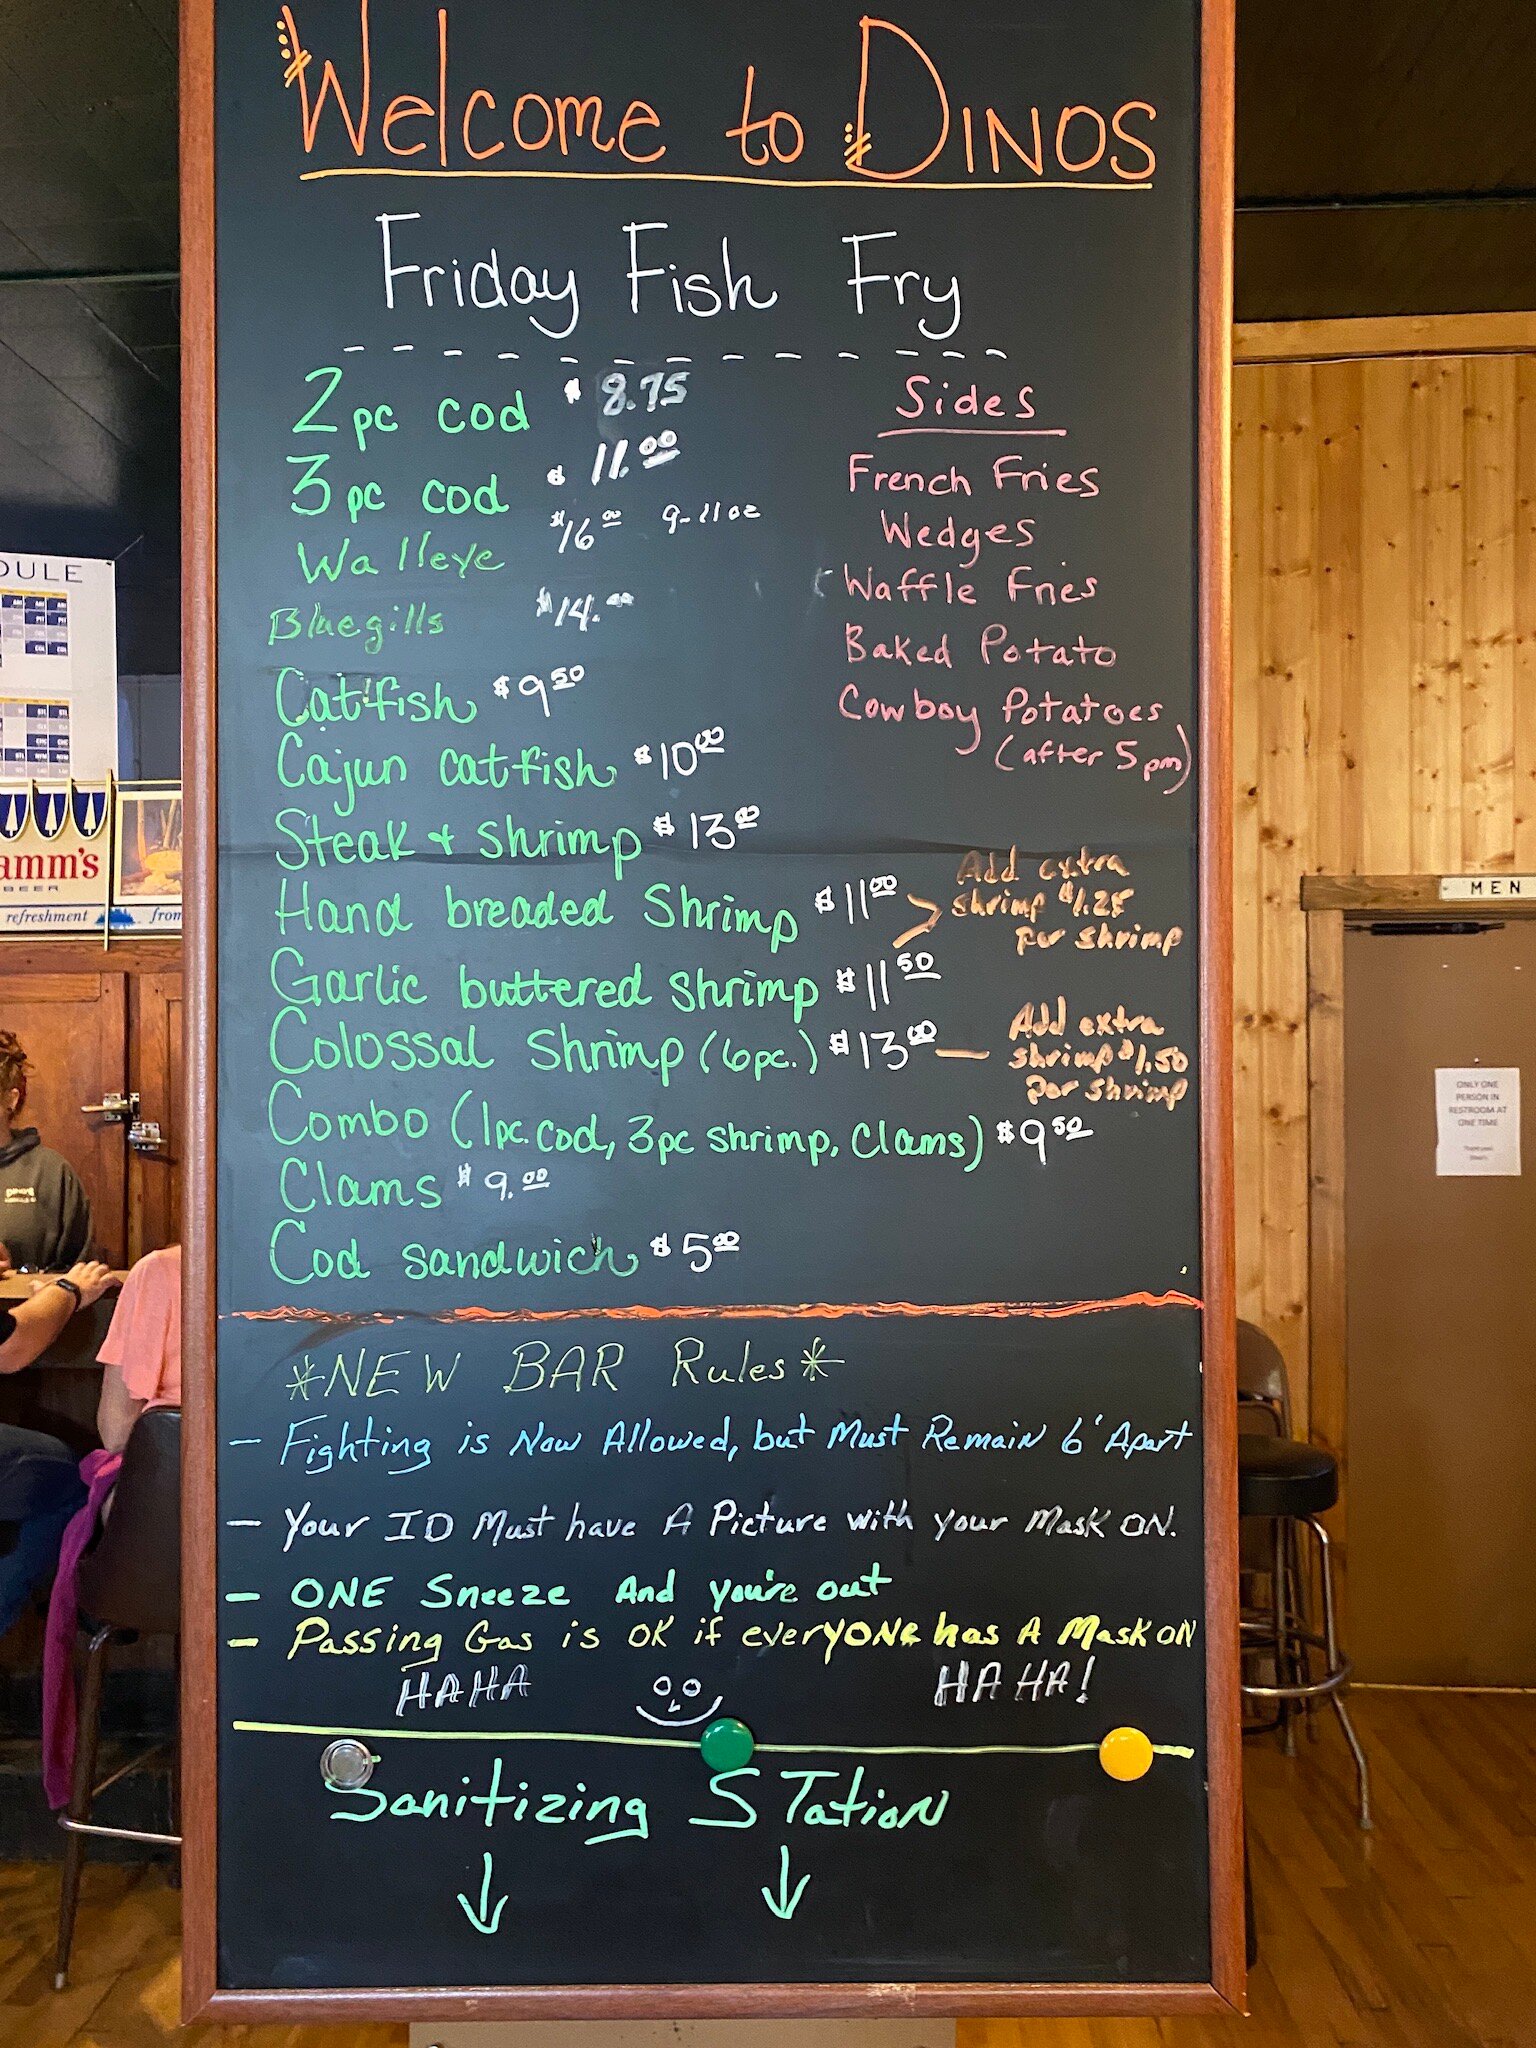 Welcome to DINOS
Friday Fish Fry
2pc cod $ 8.75
3pc cod $ 11.00
Walleye $16.00 9-11oz
Bluegills $14.00
Catfish $9.50
Cajun catfish $10.00
Steak + shrimp $13.00
Hand breaded Shrimp $11.00
Garlic buttered shrimp $11.50
Colossal Shrimp (6pc.) $13.00
Combo (1pc. cod, 3pc shrimp, clams) $9.50
Clams $9.00
Cod sandwich $5.00
Sides
French Fries
Wedges
Waffle Fries
Baked Potato
Cowboy Potatoes
(after 5pm)
Add extra
shrimp $1.25
per shrimp
Add extra
shrimp $1.50
per shrimp
*NEW BAR Rules*
- Fighting is Now Allowed, but Must Remain 6' Apart
- Your ID Must have A Picture with your Mask ON.
- ONE Sneeze And you're out
- Passing Gas is OK if everyONe has A Mask ON
HAHA HA HA!
Sanitizing STation
DULE
amm's
BEER
refreshment from
MEN
ONLY ONE
PERSON IN
RESTROOM AT
ONE TIME